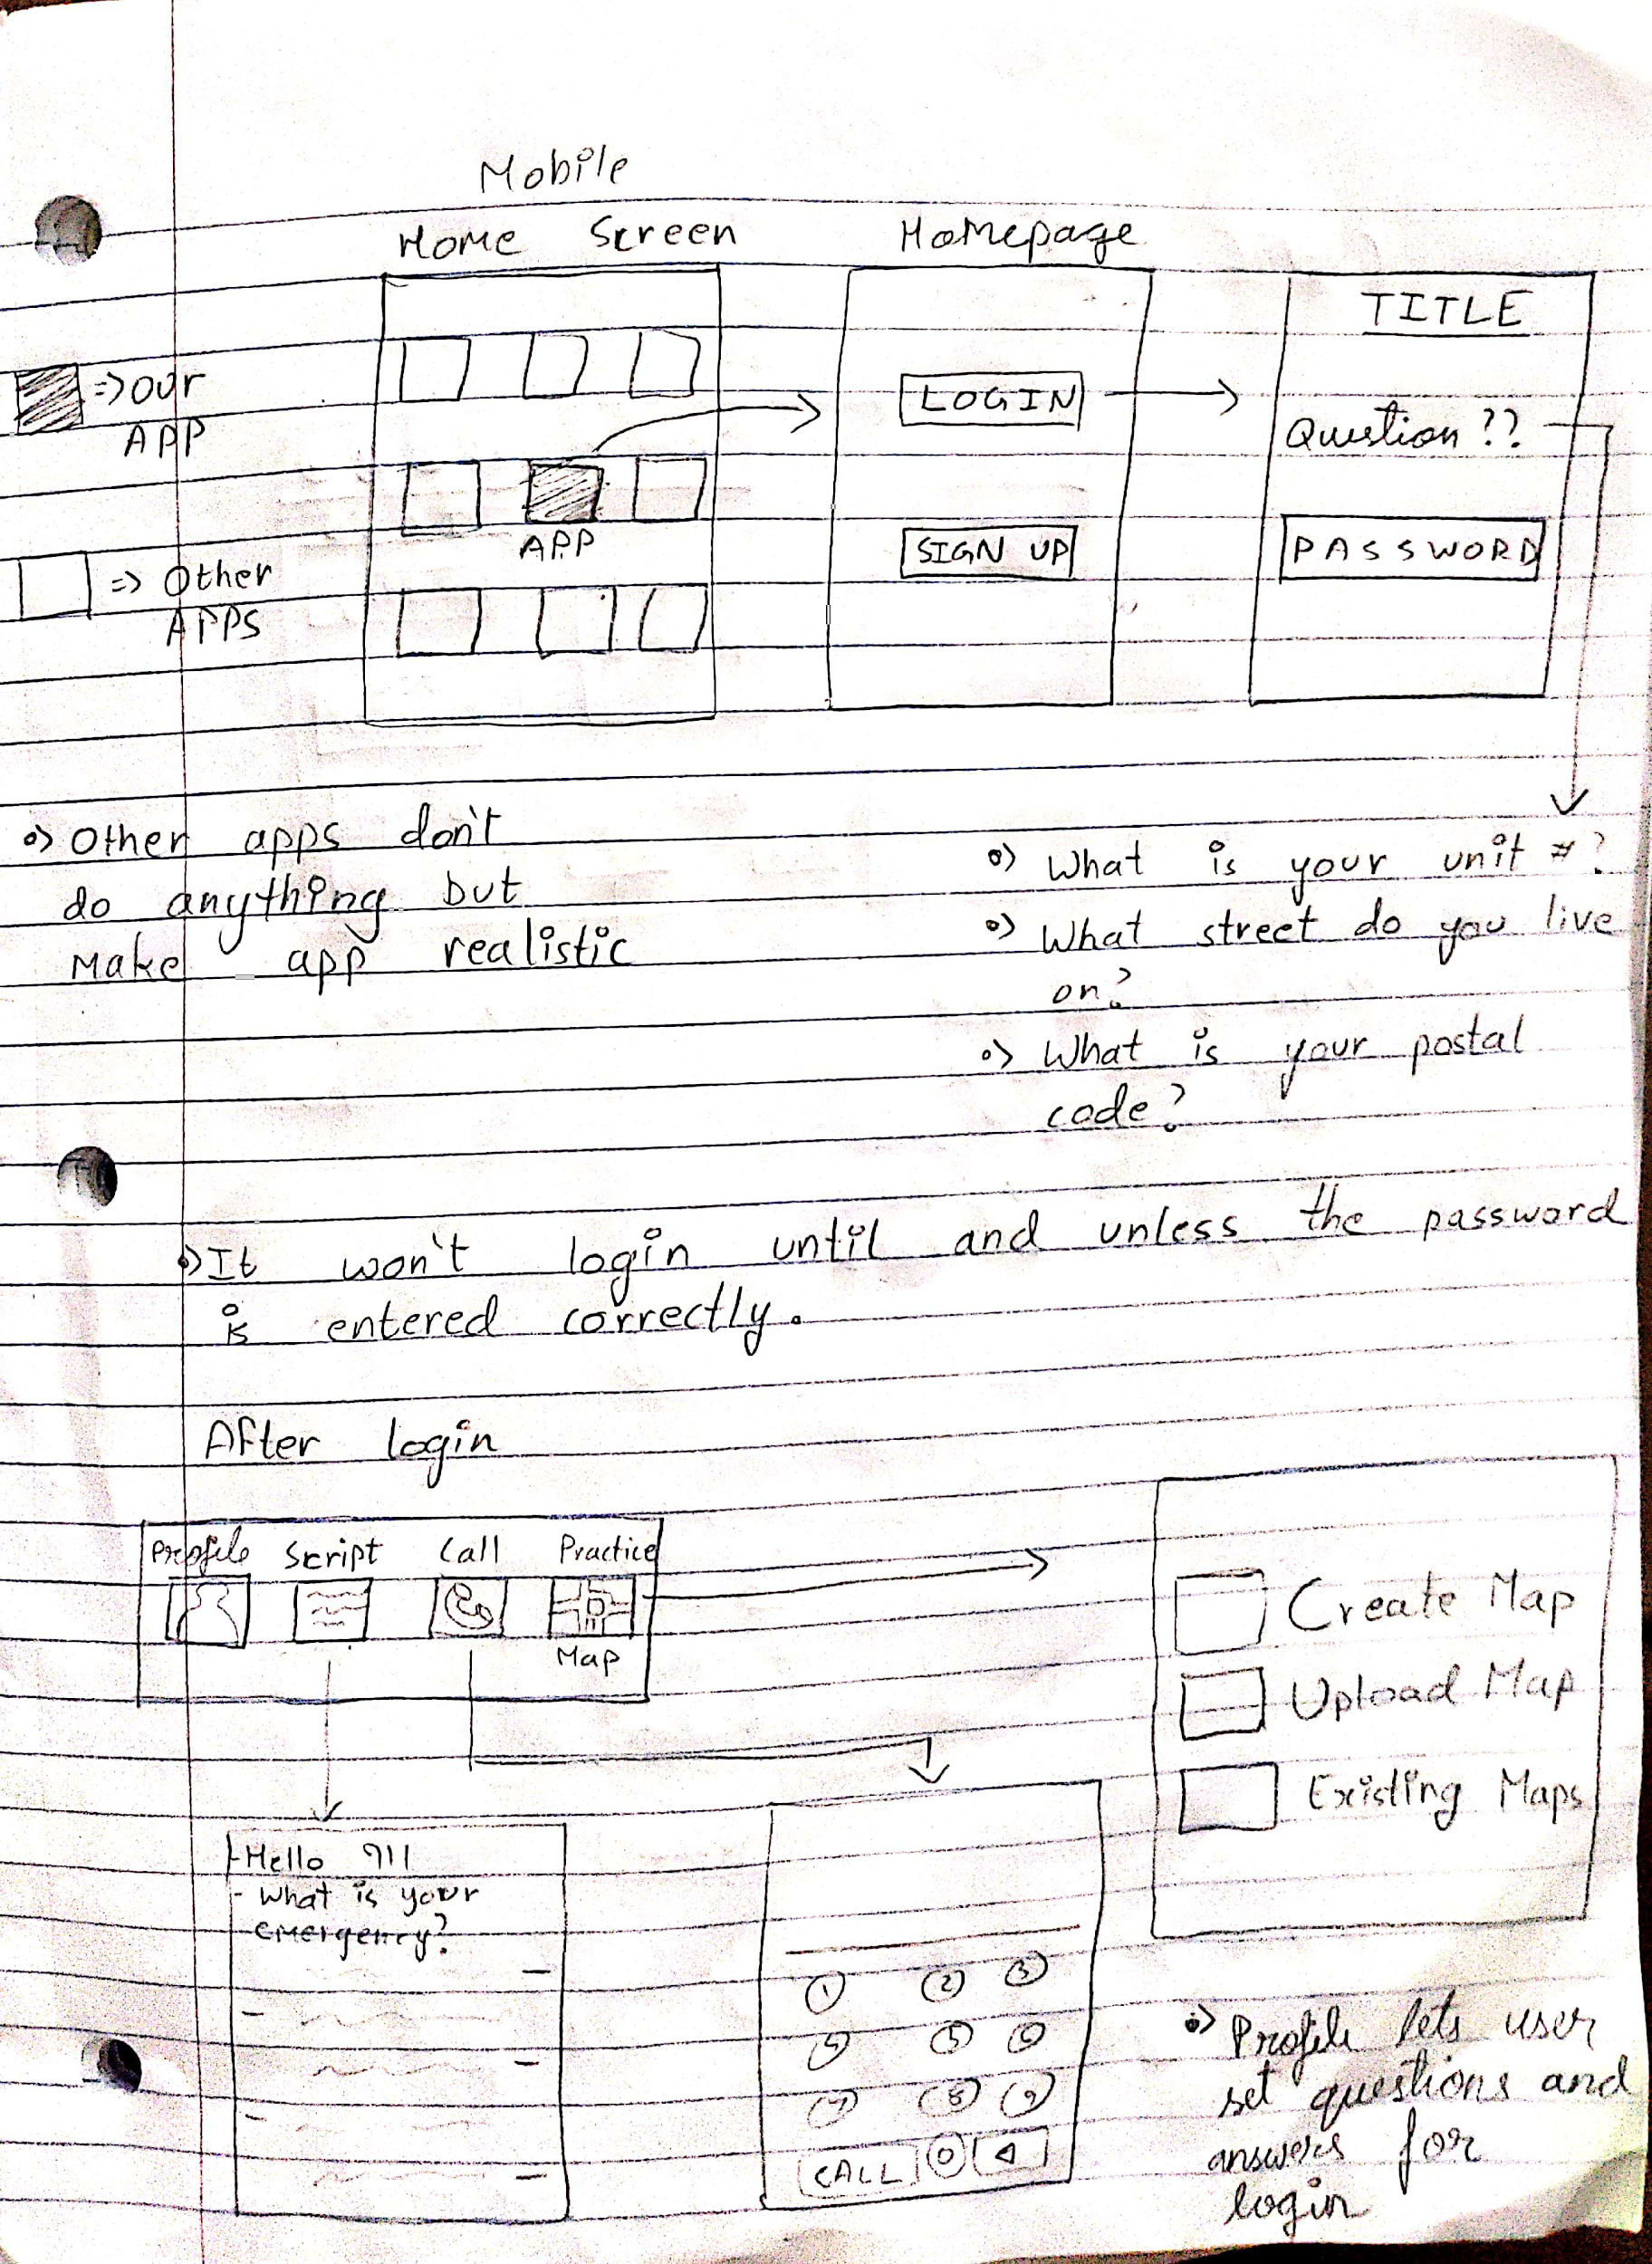 Mobile
Home Screen
Homepage
TITLE
⇒ our
APP
LOGIN
Question ??
APP
SIGN UP
PASSWORD
⇒ Other
APPS
Other apps don't
do anything but
Make app realistic
What is your unit #?
What street do you live
on?
What is your postal
code?
It won't login until and unless the password
is entered correctly.
After login
Profile Script Call Practice
Map
Create Map
Upload Map
Existing Maps
- Hello 911
- What is your
emergency?
1 2 3
4 5 6
7 8 9
CALL 0
Profile lets user
set questions and
answers for
login